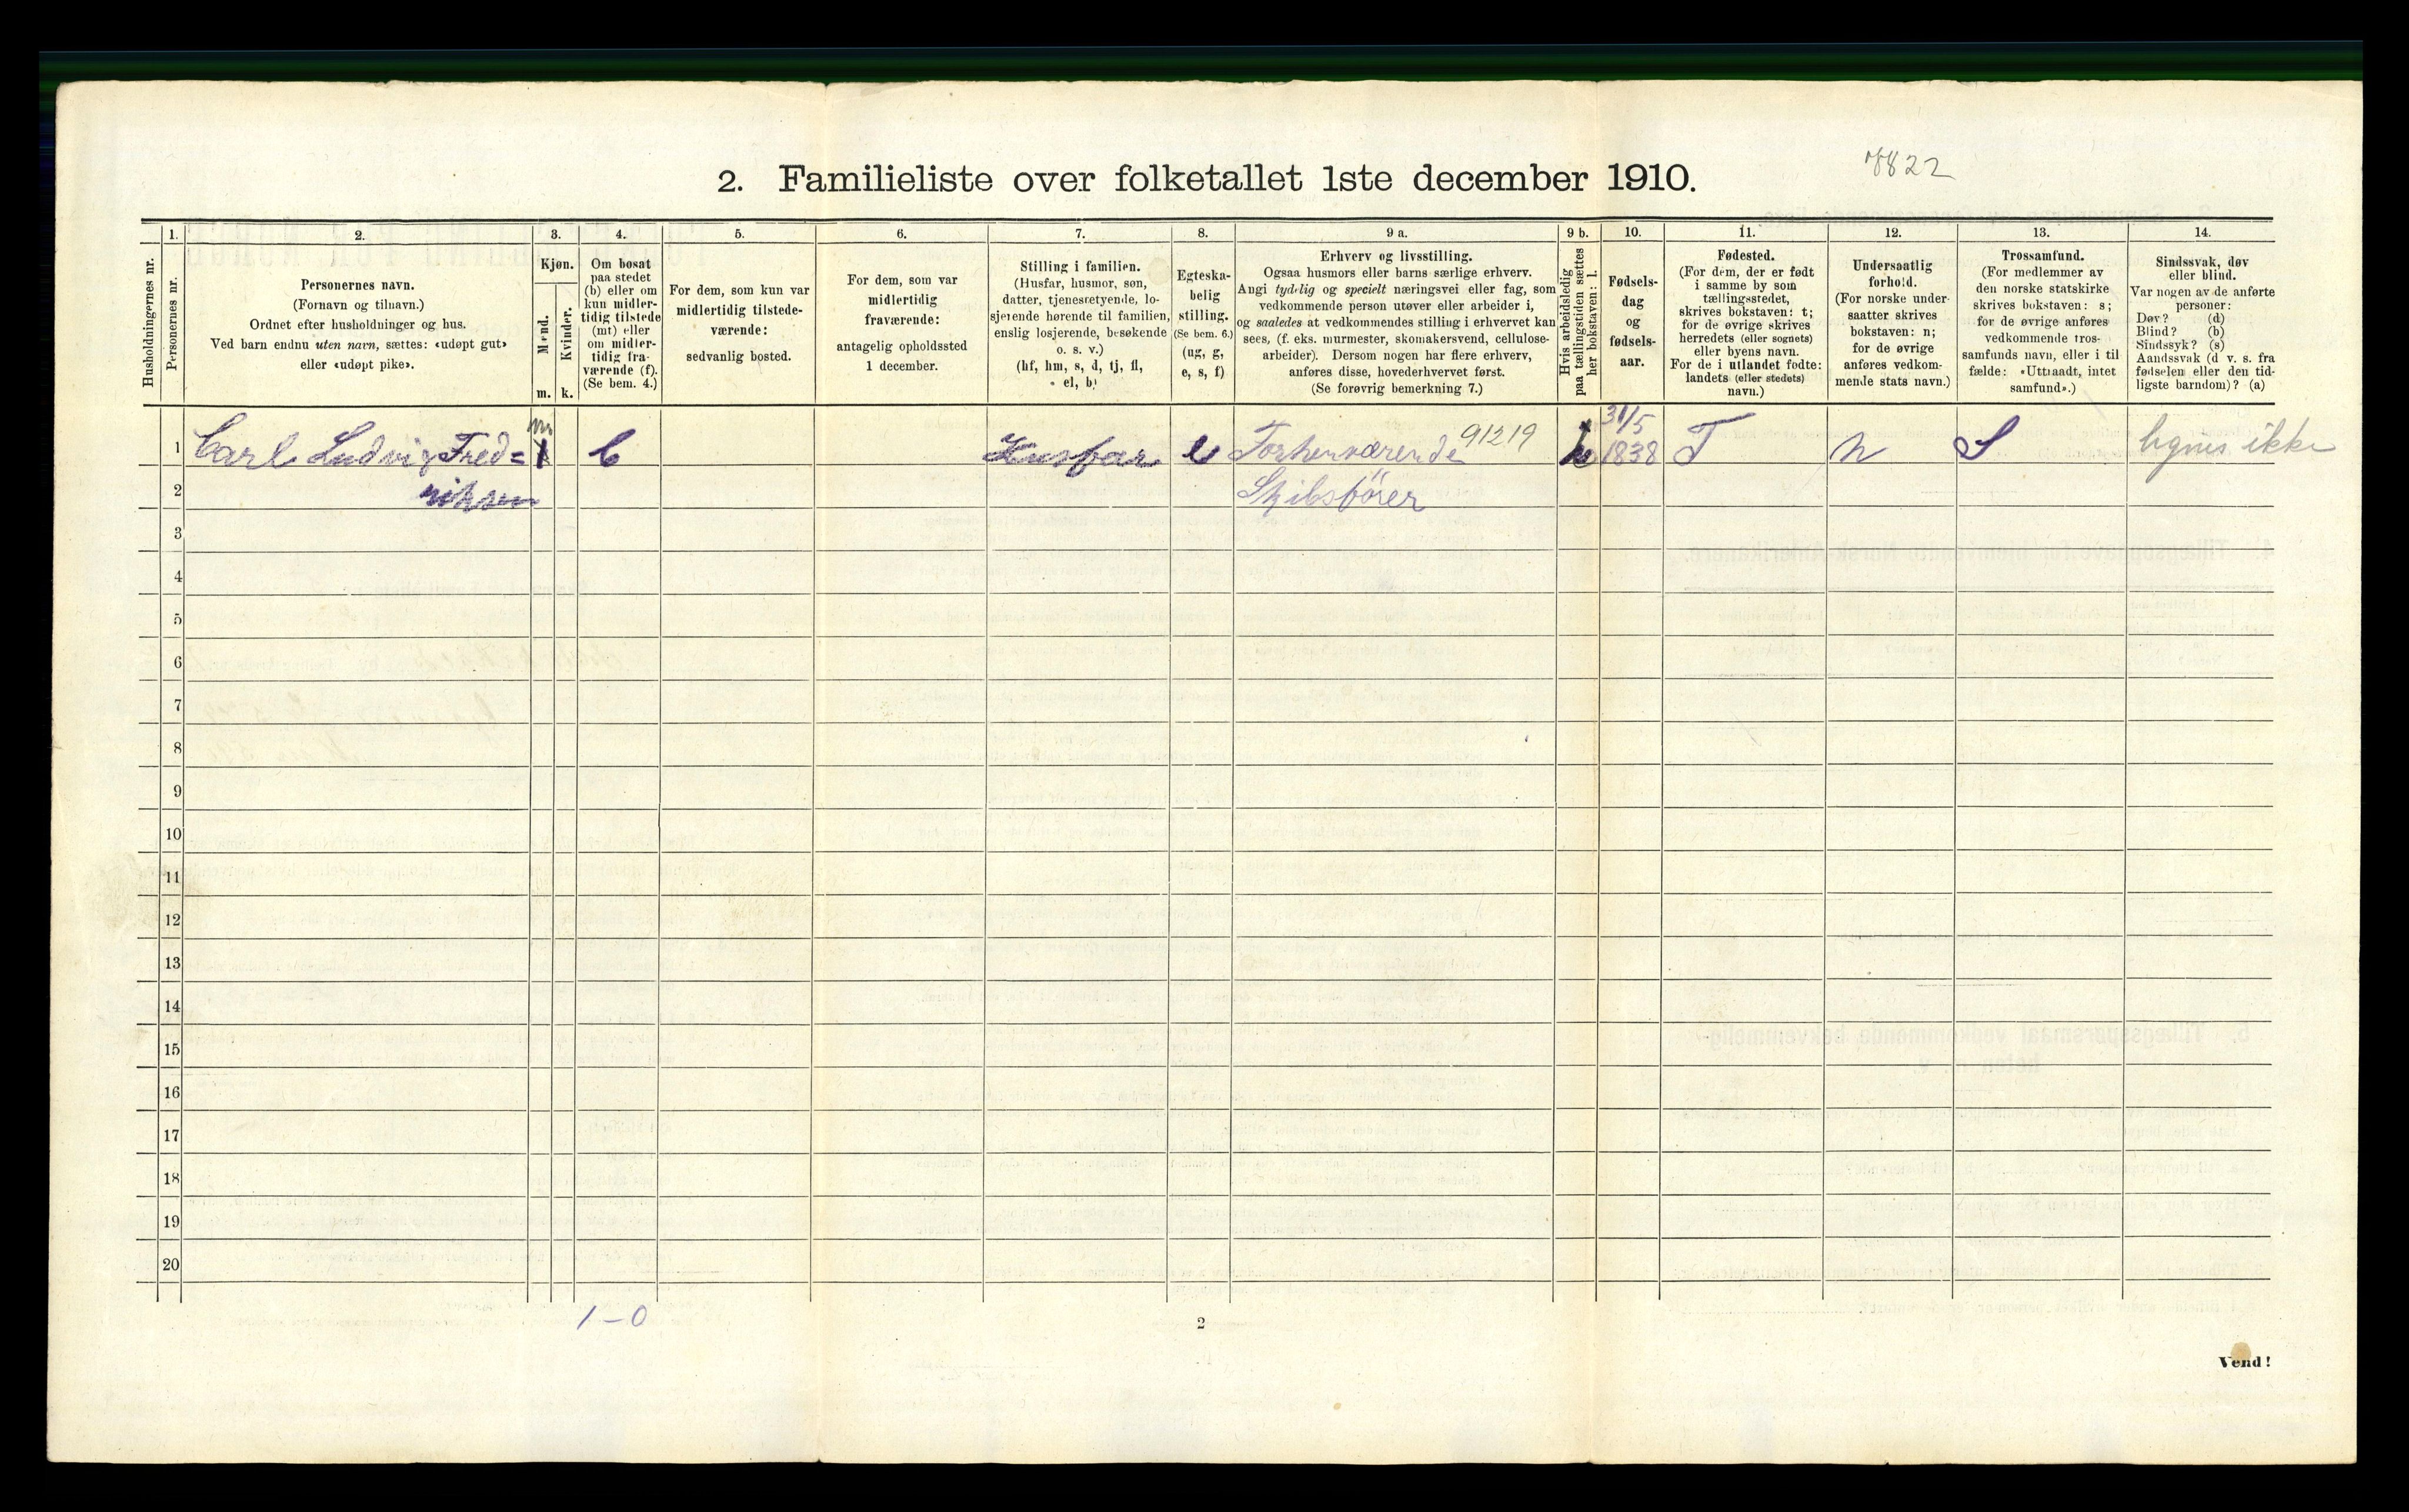 2. Familieliste over folketallet 1ste december 1910.
7822
Husholdningernes nr.
1.
Personernes nr.
2.
Personernes navn.
(Fornavn og tilnavn.)
Ordnet efter husholdninger og hus.
Ved barn endnu uten navn, sættes: «udøpt gut»
eller «udøpt pike».
3.
Kjøn.
Mænd.
Kvinder.
m.
k.
4.
Om bosat
paa stedet
(b) eller om
kun midler-
tidig tilstede
(mt) eller
om midler-
tidig fra-
værende (f).
(Se bem. 4.)
5.
For dem, som kun var
midlertidig tilstede-
værende:
sedvanlig bosted.
6.
For dem, som var
midlertidig
fraværende:
antagelig opholdssted
1 december.
7.
Stilling i familien.
(Husfar, husmor, søn,
datter, tjenestetyende, lo-
sjerende hørende til familien,
enslig losjerende, besøkende
o. s. v.)
(hf, hm, s, d, tj, fl,
el, b)
8.
Egteska-
belig
stilling.
(Se bem. 6.)
(ug, g,
e, s, f)
9 a.
Erhverv og livsstilling.
Ogsaa husmors eller barns særlige erhverv.
Angi tydelig og specielt næringsvei eller fag, som
vedkommende person utøver eller arbeider i,
og saaledes at vedkommendes stilling i erhvervet kan
sees, (f. eks. murmester, skomakersvend, cellulose-
arbeider). Dersom nogen har flere erhverv,
anføres disse, hovederhvervet først.
(Se forøvrig bemerkning 7.)
9 b.
Hvis arbeidsledig
paa tællingstiden sættes
her bokstaven: l.
10.
Fødsels-
dag
og
fødsels-
aar.
11.
Fødested.
(For dem, der er født
i samme by som
tællingsstedet,
skrives bokstaven: t;
for de øvrige skrives
herredets (eller sognets)
eller byens navn.
For de i utlandet fødte:
landets (eller stedets)
navn.)
12.
Undersaatlig
forhold.
(For norske under-
saatter skrives
bokstaven: n;
for de øvrige
anføres vedkom-
mende stats navn.)
13.
Trossamfund.
(For medlemmer av
den norske statskirke
skrives bokstaven: s;
for de øvrige anføres
vedkommende tros-
samfunds navn, eller i til
fælde: «Uttraadt, intet
samfund».)
14.
Sindssvak, døv
eller blind.
Var nogen av de anførte
personer:
Døv? (d)
Blind? (b)
Sindssyk? (s)
Aandssvak (d v. s. fra
fødselen eller den tid-
ligste barndom)? (a)
1 Carl Ludvig Fred= 1 b Husfar e Forhenværende 91219 31/5 1838 T n S
2 riksen Skibsfører
3
4
5
6
7
8
9
10
11
12
13
14
15
16
17
18
19
20
1–0
2
Vend!